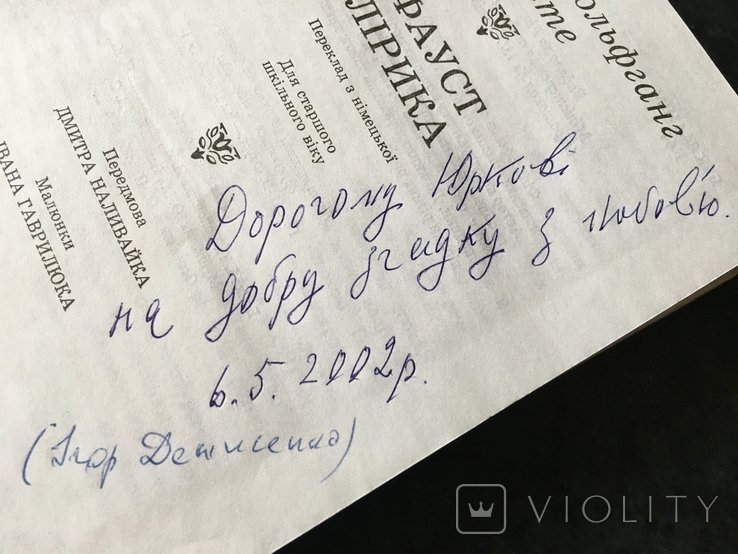 ольфганг
те
ФАУСТ
ЛІРИКА
Переклад з німецької
Для старшого
шкільного віку
Передмова
ДМИТРА НАЛИВАЙКА
Малюнки
ІВАНА ГАВРИЛЮКА
Дорогому Юркові
на добру згадку з любов'ю.
6.5.2002р.
(Ігор Денисенко)
VIOLITY